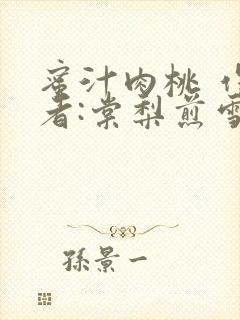 蜜汁肉桃 作
者:棠梨煎雪
孫景一